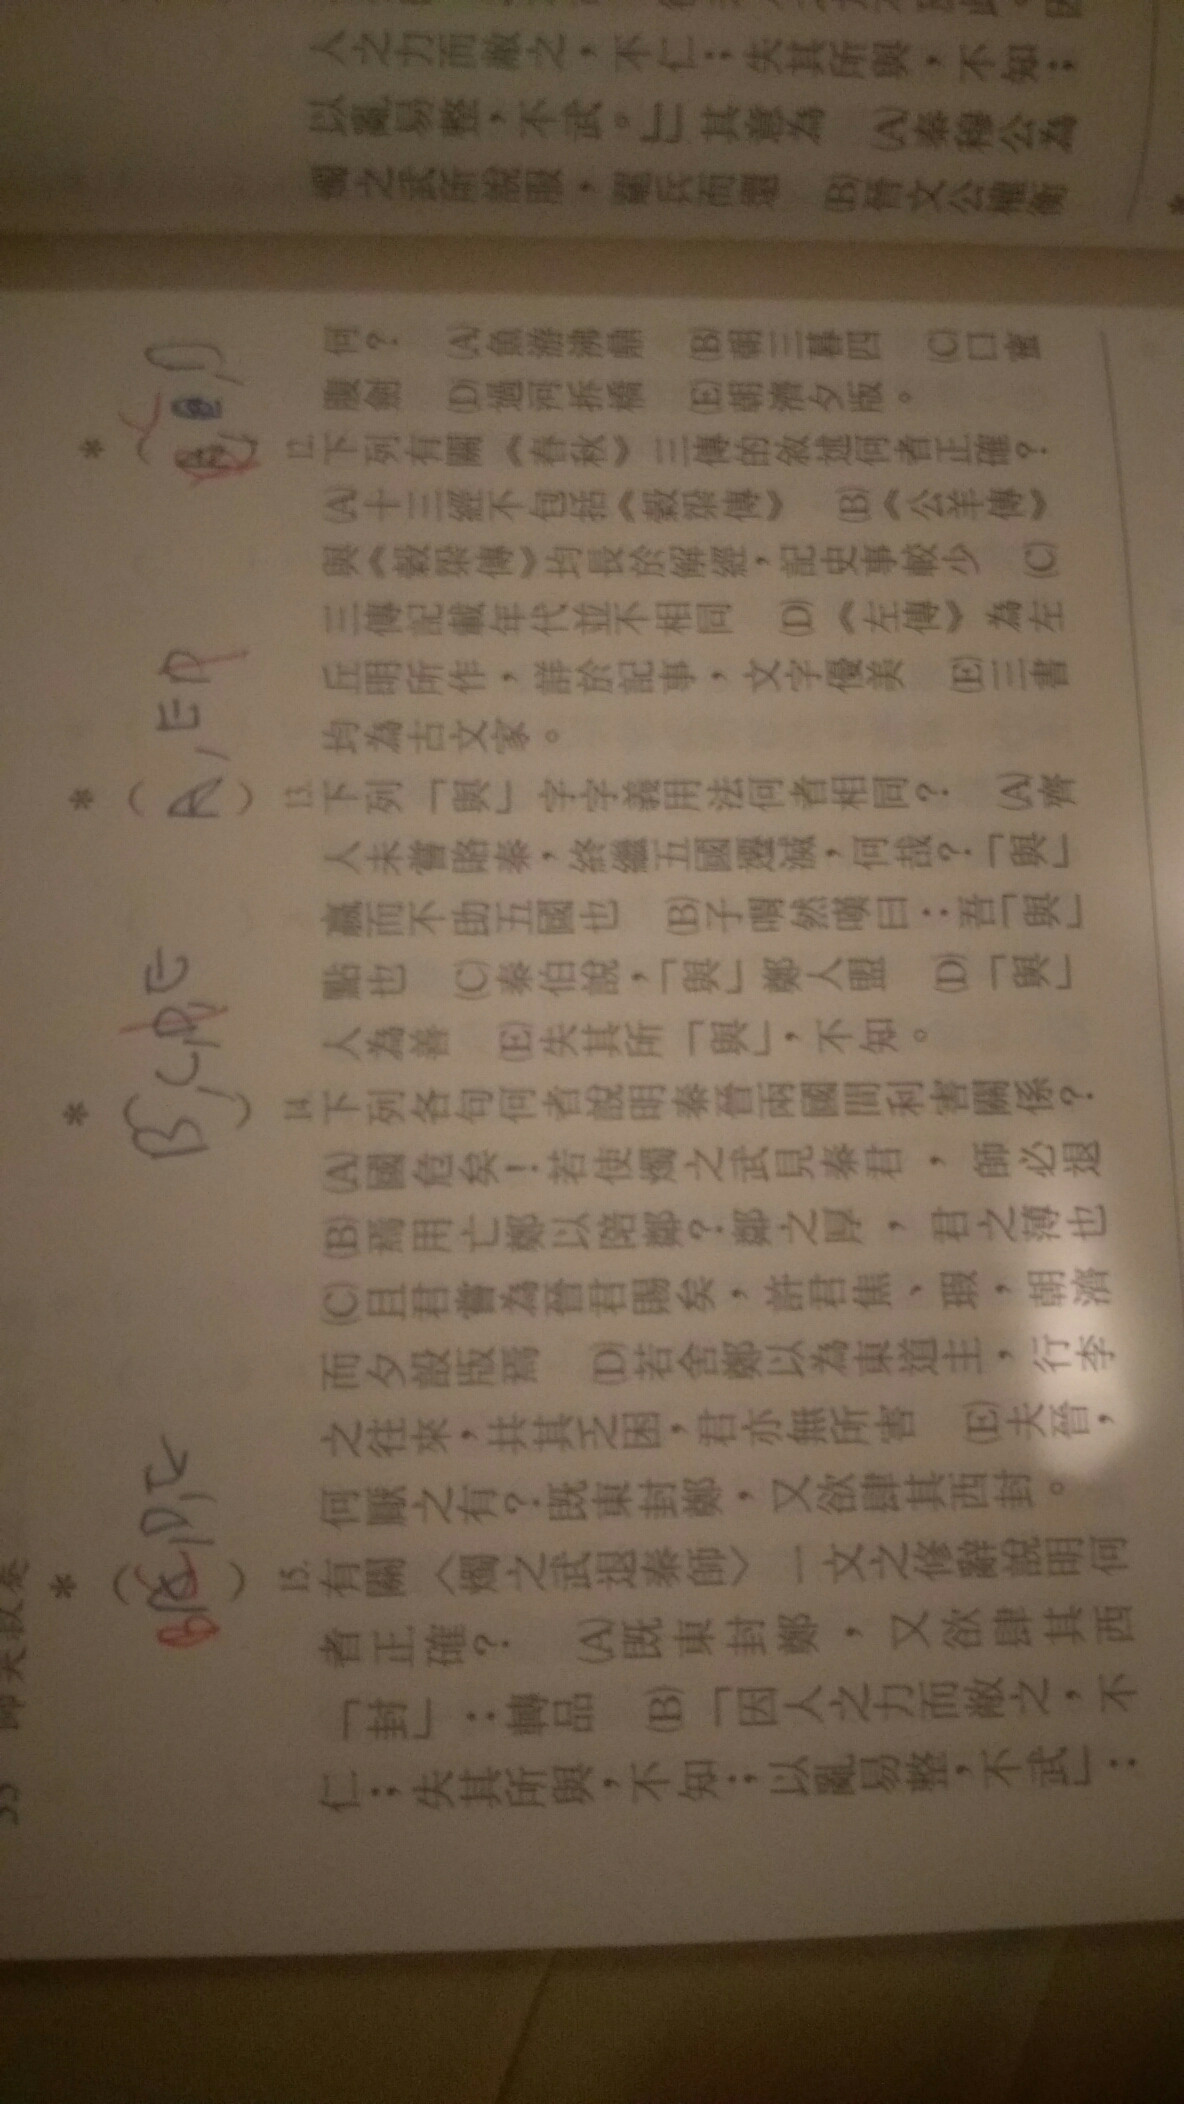 人之力而敝之，不仁；失其所與，不知；
以亂易整，不武。」其意為　(A)秦穆公為
燭之武所說服，罷兵而還　(B)晉文公權衡
何？　(A)魚游沸鼎　(B)朝三暮四　(C)口蜜
腹劍　(D)過河拆橋　(E)朝濟夕版。
* 12. 下列有關《春秋》三傳的敘述何者正確？
(A)十三經不包括《穀梁傳》　(B)《公羊傳》
與《穀梁傳》均長於解經，記史事較少　(C)
三傳記載年代並不相同　(D)《左傳》為左
丘明所作，詳於記事，文字優美　(E)三書
均為古文家。
* (A, E D) 13. 下列「與」字字義用法何者相同？　(A)齊
人未嘗賂秦，終繼五國遷滅，何哉？「與」
嬴而不助五國也　(B)子喟然嘆曰：吾「與」
點也　(C)秦伯說，「與」鄭人盟　(D)「與」
人為善　(E)失其所「與」，不知。
* (B, C, D, E) 14. 下列各句何者說明秦晉兩國間利害關係？
(A)國危矣！若使燭之武見秦君，師必退
(B)焉用亡鄭以陪鄰？鄰之厚，君之薄也
(C)且君嘗為晉君賜矣，許君焦、瑕，朝濟
而夕設版焉　(D)若舍鄭以為東道主，行李
之往來，共其乏困，君亦無所害　(E)夫晉，
何厭之有？既東封鄭，又欲肆其西封。
* 15. 有關〈燭之武退秦師〉一文之修辭說明何
者正確？　(A)既東封鄭，又欲肆其西
「封」：轉品　(B)「因人之力而敝之，不
仁；失其所與，不知；以亂易整，不武」：